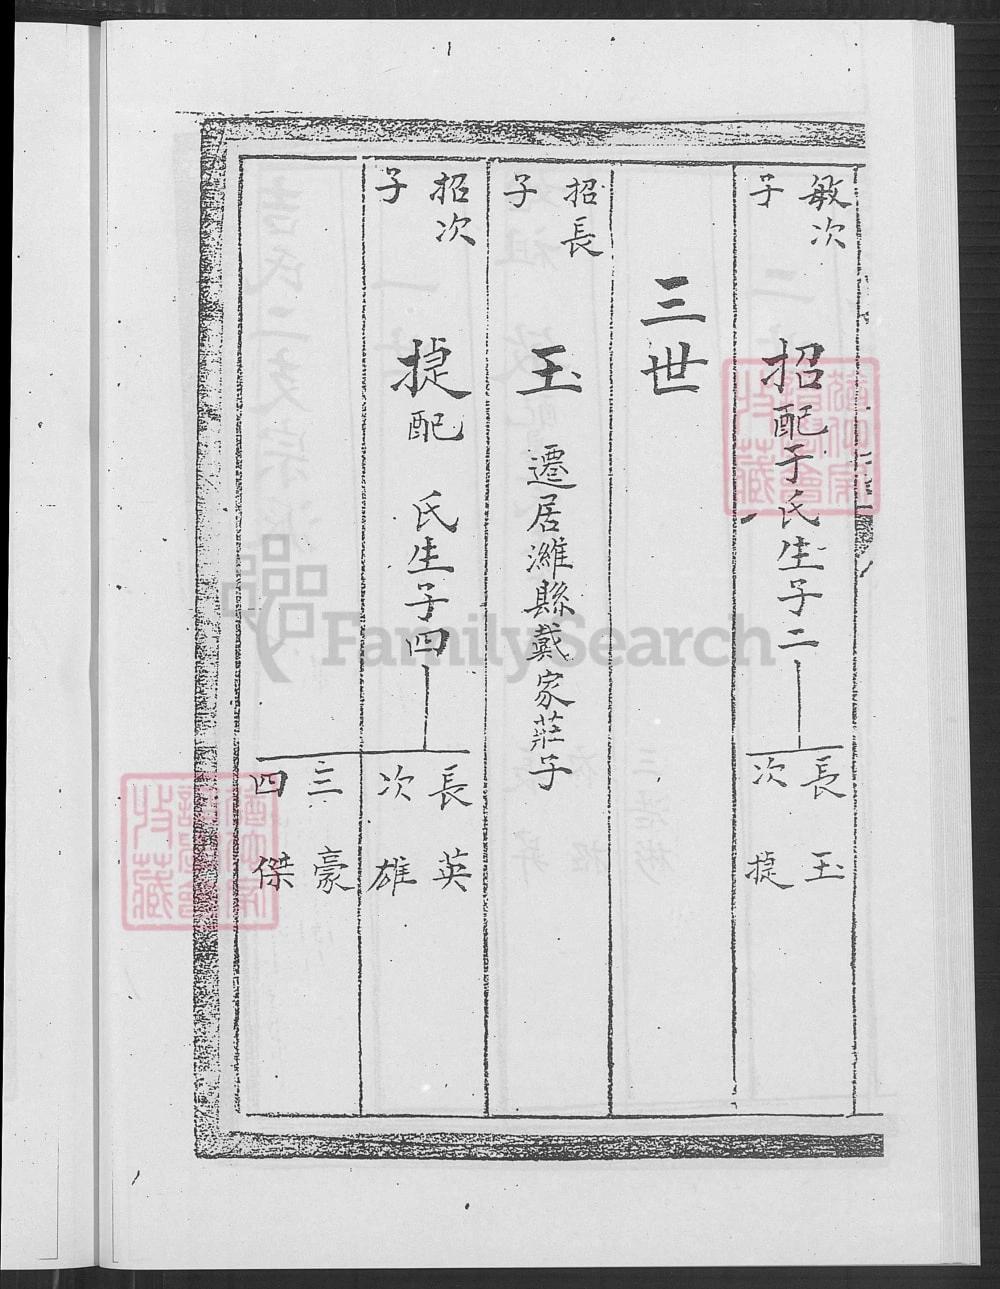 敏次子
招配于氏生子二
長 玉
次 捷
三世
招長子
玉 遷居濰縣戴家莊子
招次子
捷配 氏生子四
長 英
次 雄
三 豪
四 傑
FamilySearch